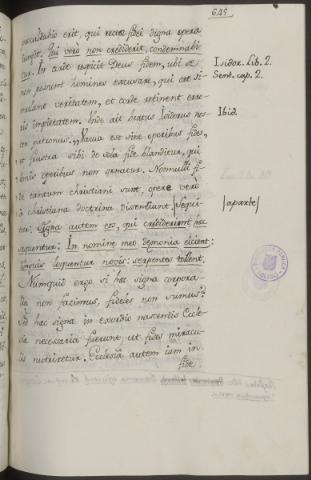 645
procul dubio erit, qui rectæ fidei digna opera
iungit. Qui verò non crediderit, condemnabi
tur. In corde respicit Deus fidem, ubi se
non possunt homines excusare, qui ore si-
mulant veritatem, et corde retinent erro-
ris impietatem. Unde ait beatus Isidorus nos-
ter patronus: „ Vacua est sine operibus fides,
et frustra sibi de sola fide blanditur, qui
bonis operibus non ornatur. Nonnulli fi-
de tantum christiani sunt, opere verò
à christiana doctrina dissentiunt. Sequi-
tur: Signa autem eos, qui crediderint hæc
sequentur: In nomine meo demonia eiicient:
linguis loquentur novis: serpentes tollent.
Numquid ergo si hæc signa corpora-
lia non facimus, fideles non sumus?
sed hæc signa in exordio nascentis Eccle-
siæ necessaria fuerunt ut fides miracu-
lis nutriretur. Ecclesia autem iam in
fide
Isidor. Lib. 2.
Sent. cap. 2.
Ibid.
[aparte]